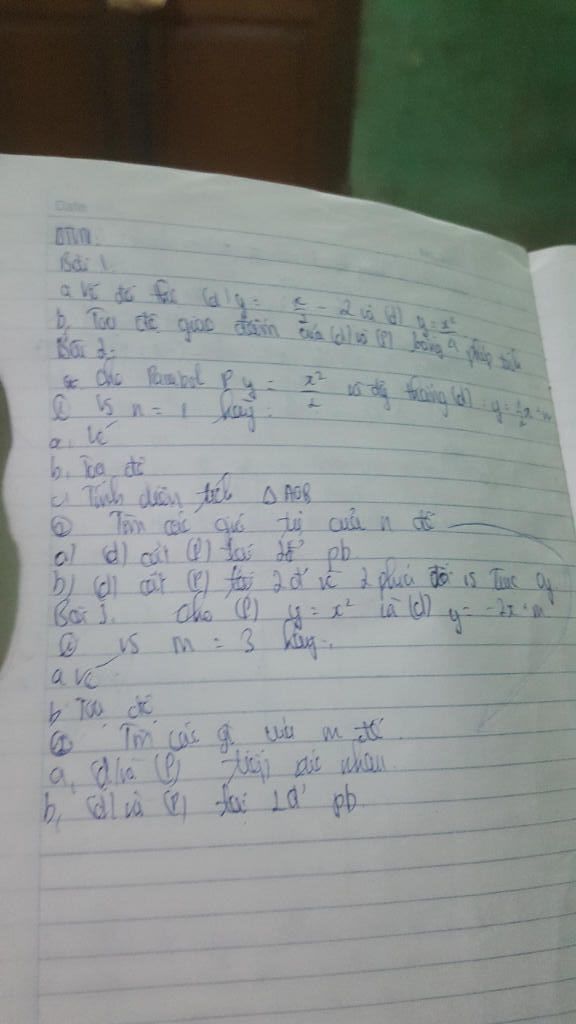 Date
BTVN:
Bài 1.
a, Vẽ đồ thị (d) y = x/2 - 2 và (d) y = x²/4
b, Toạ độ giao điểm của (d) và (P) bằng phép tính
Bài 2:
Cho Parabol P y = x²/2 và đg thẳng (d): y = 1/2x
① vs n = 1 hãy:
a, Vẽ
b, Toạ độ
c, Tính diện tích △AOB
② Tìm các giá trị của n để
a) (d) cắt (P) tại 2đ' pb
b) (d) cắt (P) tại 2 đ' về 2 phía đối vs trục oy
Bài 3. Cho (P) y = x² và (d) y = -2x + m
① vs m = 3 hãy:
a vẽ
b Toạ độ
② Tìm các gt của m để
a, (d) và (P) tiếp xúc nhau.
b, (d) và (P) tại 2đ' pb.